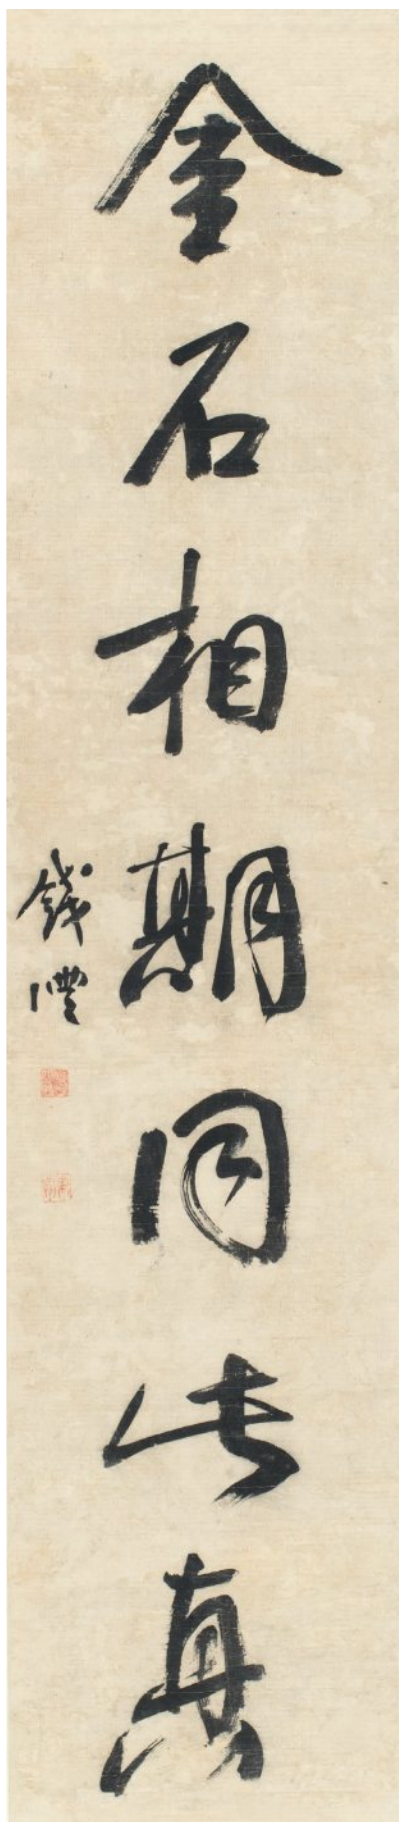 金石相期同此真
錢灃